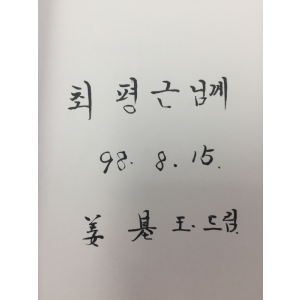 최 평 근 님께
98. 8. 15.
姜 基 王. 드림.